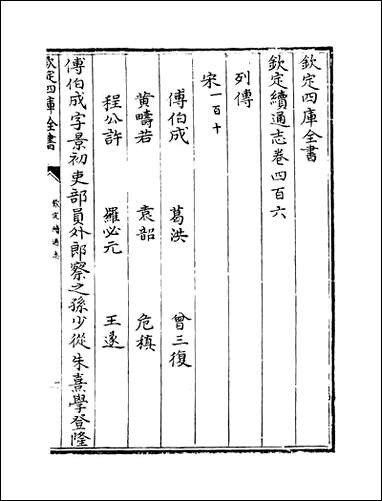 欽定四庫全書
欽定續通志卷四百六
列傳
宋一百十
傅伯成 葛洪 曾三復
黄疇若 袁韶 危稹
程公許 羅必元 王遂
傅伯成字景初吏部員外郎察之孫少從朱熹學登隆
欽定四庫全書
欽定續通志
一